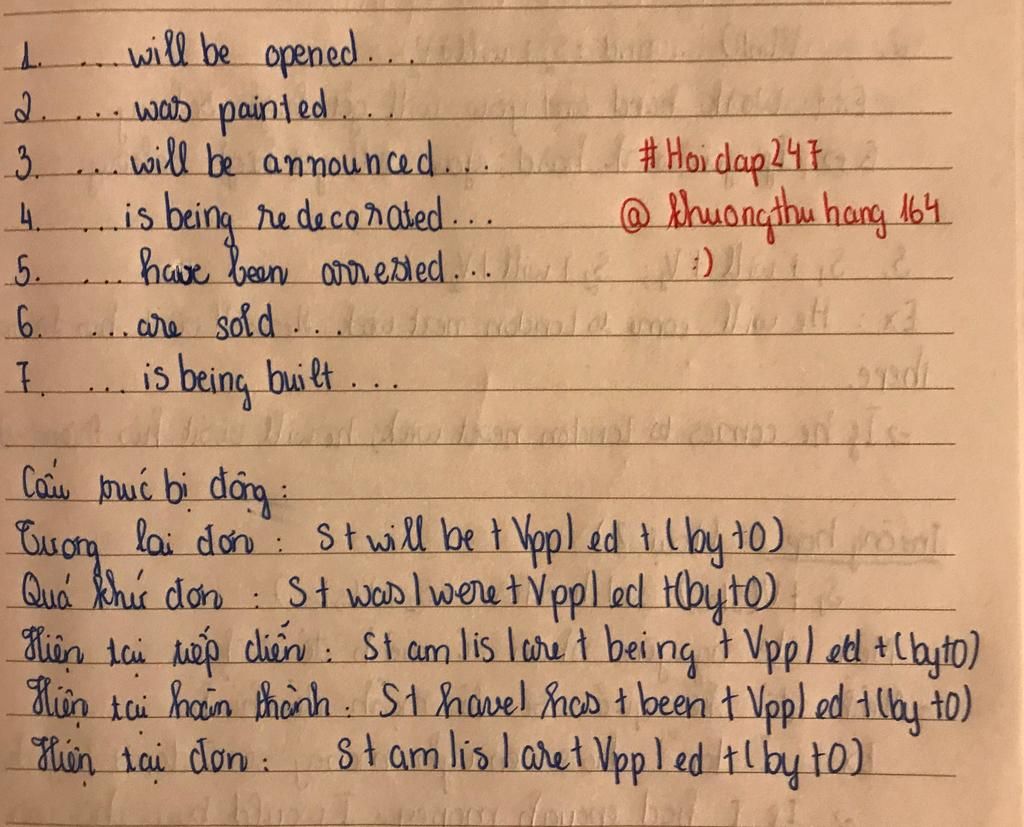 1. ... will be opened...
2. ... was painted...
3. ... will be announced... #Hoidap247
4. ... is being redecorated... @ khuongthuhang164
5. ... have been arrested... :)
6. ... are sold...
7. ... is being built...
Cấu trúc bị động:
Tương lai đơn: S + will be + Vpp/ed + (by + O)
Quá khứ đơn: S + was/were + Vpp/ed + (by + O)
Hiện tại tiếp diễn: S + am/is/are + being + Vpp/ed + (by + O)
Hiện tại hoàn thành: S + have/has + been + Vpp/ed + (by + O)
Hiện tại đơn: S + am/is/are + Vpp/ed + (by + O)